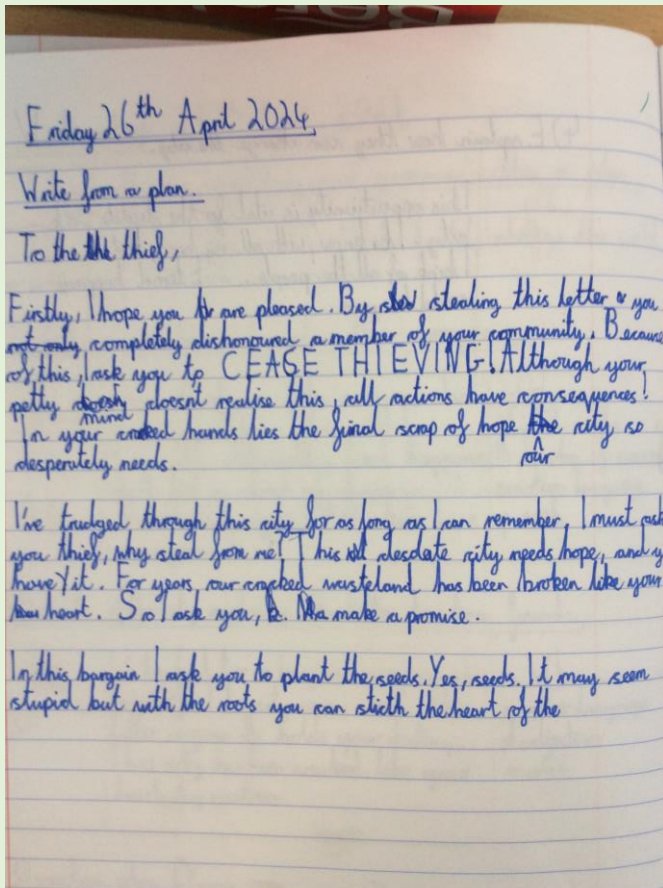 Friday 26th April 2024
Write from a plan.
To the thief,
Firstly, I hope you are pleased. By stealing this letter you
not only completely dishonoured a member of your community. Because
of this, I ask you to CEASE THIEVING! Although your
petty mind doesn't realise this, all actions have consequences!
In your hands lies the final scrap of hope our city so
desperately needs.
I've trudged through this city for as long as I can remember, I must ask
you thief, why steal from me? This desolate city needs hope, and y
have it. For years, our cracked wasteland has been broken like your
heart. So I ask you, make a promise.
In this bargain I ask you to plant the seeds. Yes, seeds. It may seem
stupid but with the roots you can sticth the heart of the